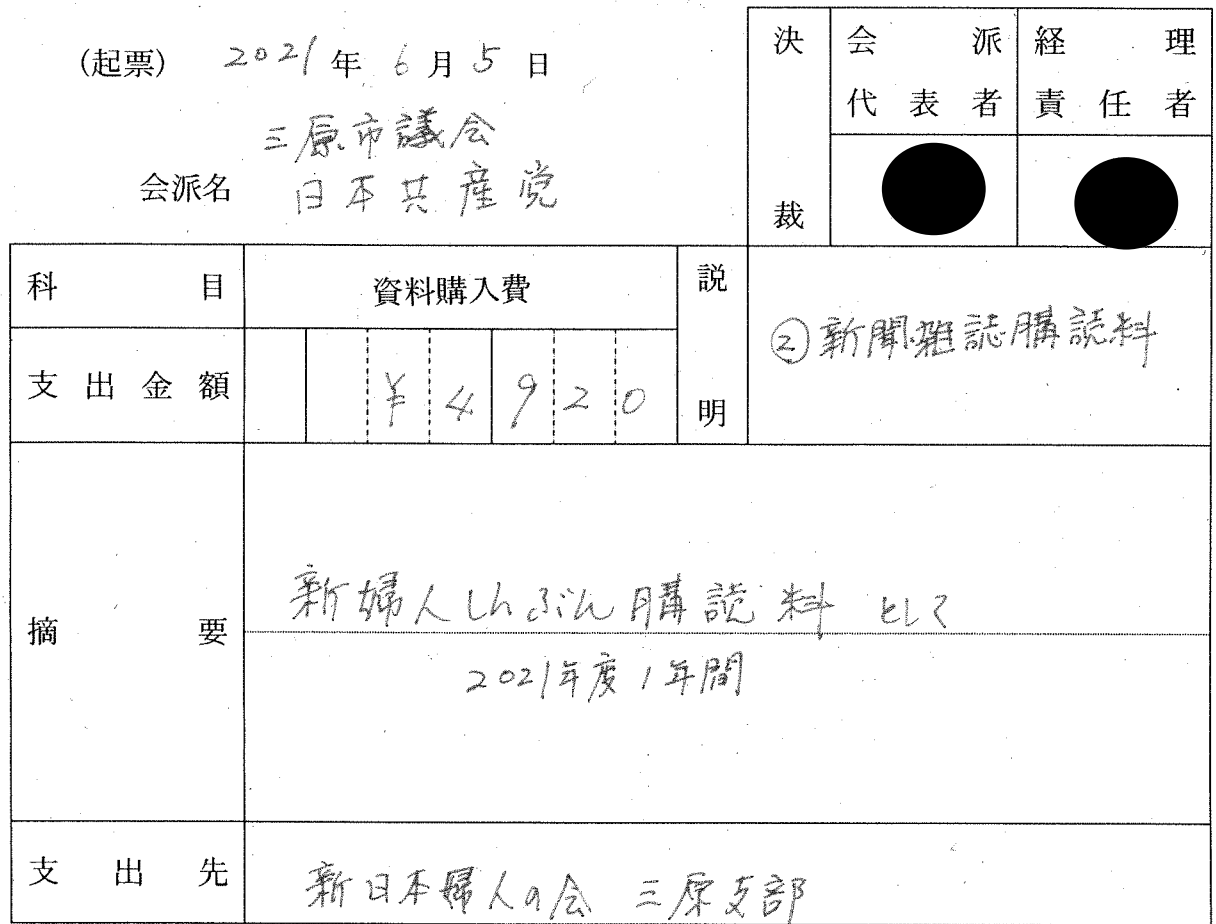 (起票) 2021年6月5日
三原市議会
会派名 日本共産党
決裁
会派代表者
経理責任者
科目 資料購入費
支出金額 ¥4920
説明 ②新聞雑誌購読料
摘要
新婦人しんぶん購読料として
2021年度1年間
支出先 新日本婦人の会 三原支部